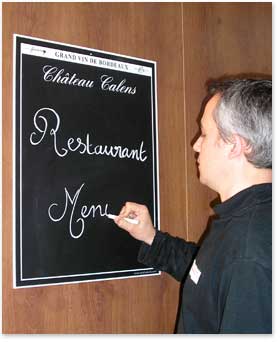 GRAND VIN DE BORDEAUX
Château Calens
Restaurant
Menu